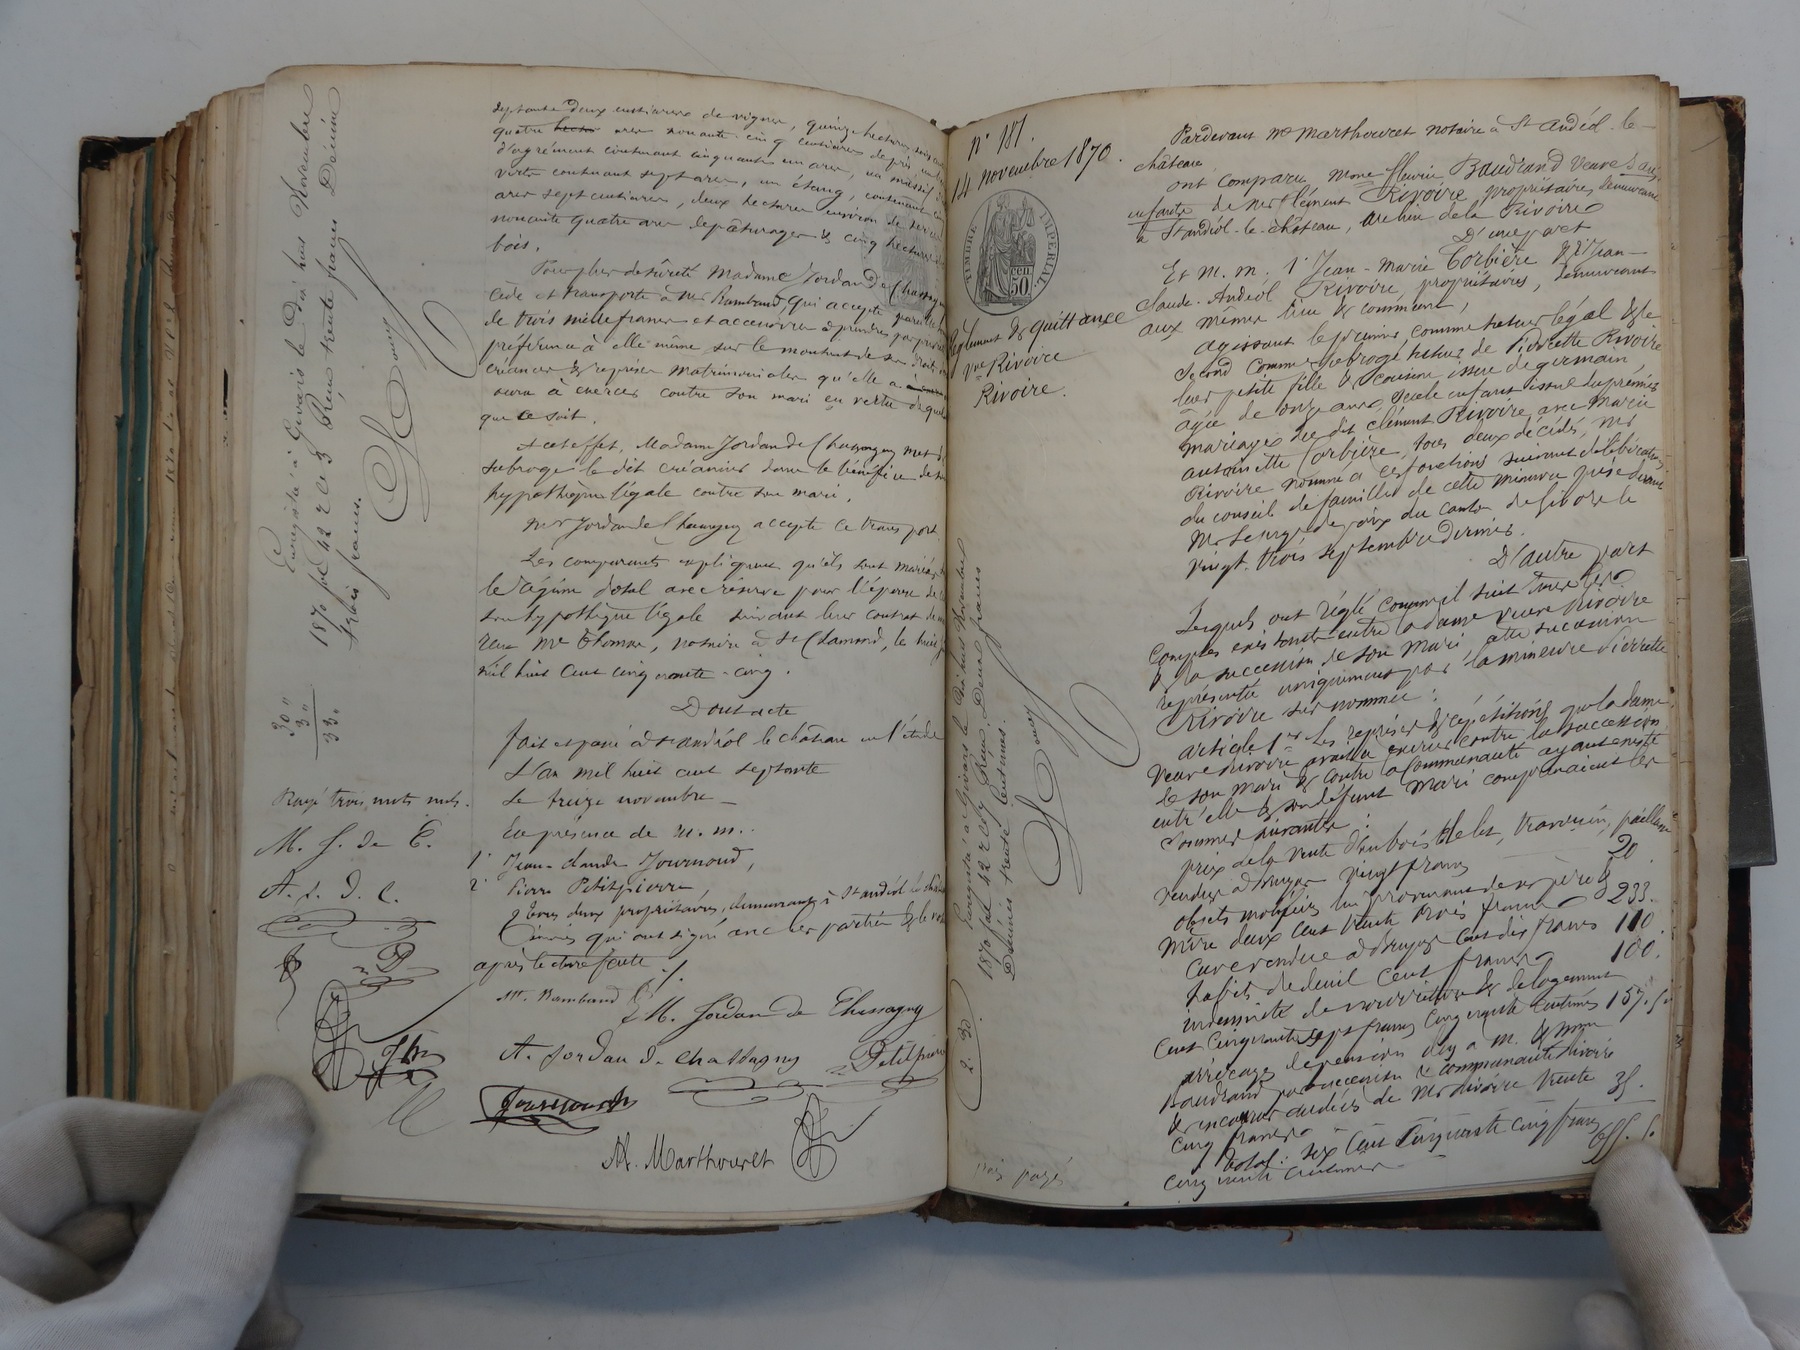 septante deux centiares de vignes, quinze hectares
quatre hecto ares nonante-cinq centiares de prés,
d'agrément contenant cinquante un ares, un massif
verte contenant sept ares, un étang, contenant
ares sept centiares, deux hectares environ de
nonante quatre ares de pâturages & cinq hectares
bois.
Pour plus de sûreté Madame Jordan de Chassagny
cède et transporte à Mr Rambaud, qui accepte pareille
de trois mille francs et accessoires à prendre par
préférence à elle même sur le montant de ses droits
créances & reprises matrimoniales qu'elle a
aura à exercer contre son mari en vertu de
que ce soit.
A cet effet, Madame Jordan de Chassagny met &
subroge le dit créancier dans le bénéfice de son
hypothèque légale contre son mari.
Mr Jordan de Chassagny accepte ce transport.
Les comparants expliquent qu'ils sont mariés
le régime dotal avec réserve pour l'épouse de
son hypothèque légale suivant leur contrat de
reçu Me Thomas, notaire à St Chamond, le huit
mil huit cent cinquante-cinq.
Dont acte
fait et passé à St andéol le château en l'étude
L'an mil huit cent septante
Le treize novembre
En présence de M.M.
1° Jean-claude Journoud,
2° Pierre Petitpierre
Tous deux propriétaires, demeurant à St andéol le château
témoins qui ont signé avec les parties & le
après lecture faite ./.
M. Rambaud M. Jordan de Chassagny
A. Jordan de Chassagny Petitpierre
Journoud
M. Marthouret
Enregistré à Givors le dix huit Novembre
1870 fol 42 r c 3 Reçu trente francs Décime
trois francs.
30 "
3 "
33 "
Rayé trois mots nuls.
M. J. de C.
A. J. D. C.
P
M
N° 181.
14 novembre 1870.
TIMBRE IMPÉRIAL
50 cen
Règlement & quittance
vve Rivoire
Rivoire.
Enregistré à Givors le dix huit Novembre
1870 fol 42 r c 4 Reçu Deux francs
Décimes trente centimes.
2. 30.
Pardevant Me Marthouret notaire à St andéol-le-
château
ont comparu Mme fleurie Baudrand veuve sans
enfants de Mr Clément Rivoire propriétaires, demeurant
à St andéol-le-château, au lieu de la Rivoire
D'une part
Et M.M. 1° Jean-Marie Corbière & 2° Jean-
claude-Andéol Rivoire, propriétaires, demeurant
aux mêmes lieu & commune,
agissant le premier comme tuteur légal & le
second comme subrogé tuteur de Pierrette Rivoire
leur petite fille & cousine issue de germain
âgée de onze ans, seule enfant issue du premier
mariage du dit Clément Rivoire avec Marie
antoinette Corbière, tous deux décédés, Mr
Rivoire nommé à ces fonctions suivant délibération
du conseil de famille de cette mineure prise devant
Mr le juge de paix du canton de Givors le
vingt-trois septembre dernier.
D'autre part
Lesquels ont réglé comme il suit tous les
comptes existants entre la dame veuve Rivoire
& la succession de son mari cette succession
représentée uniquement par la mineure Pierrette
Rivoire sus nommée :
article 1er Les reprises & répétitions que la dame
veuve Rivoire avait à exercer contre la succession
de son mari & contre la communauté ayant existé
entr'elle & son défunt mari comprenaient les
sommes suivantes :
prix de la vente d'un bois de lit, traversin, paillasse
vendus à Bruyas vingt francs 20
objets mobiliers lui provenant de ses père &
mère deux cent trente trois francs 233.
Cuve vendue à Bruyas cent dix francs 110
habits de deuil cent francs 100.
indemnité de nourriture & de logement
cent cinquante sept francs cinquante centimes 157.50
arrérages de pension dus à M. & Mme
Baudrand par succession & communauté Rivoire
& encourus au décès de Mr Rivoire trente
cinq francs 35.
Total : six cent cinquante cinq francs
cinquante centimes 655.5.